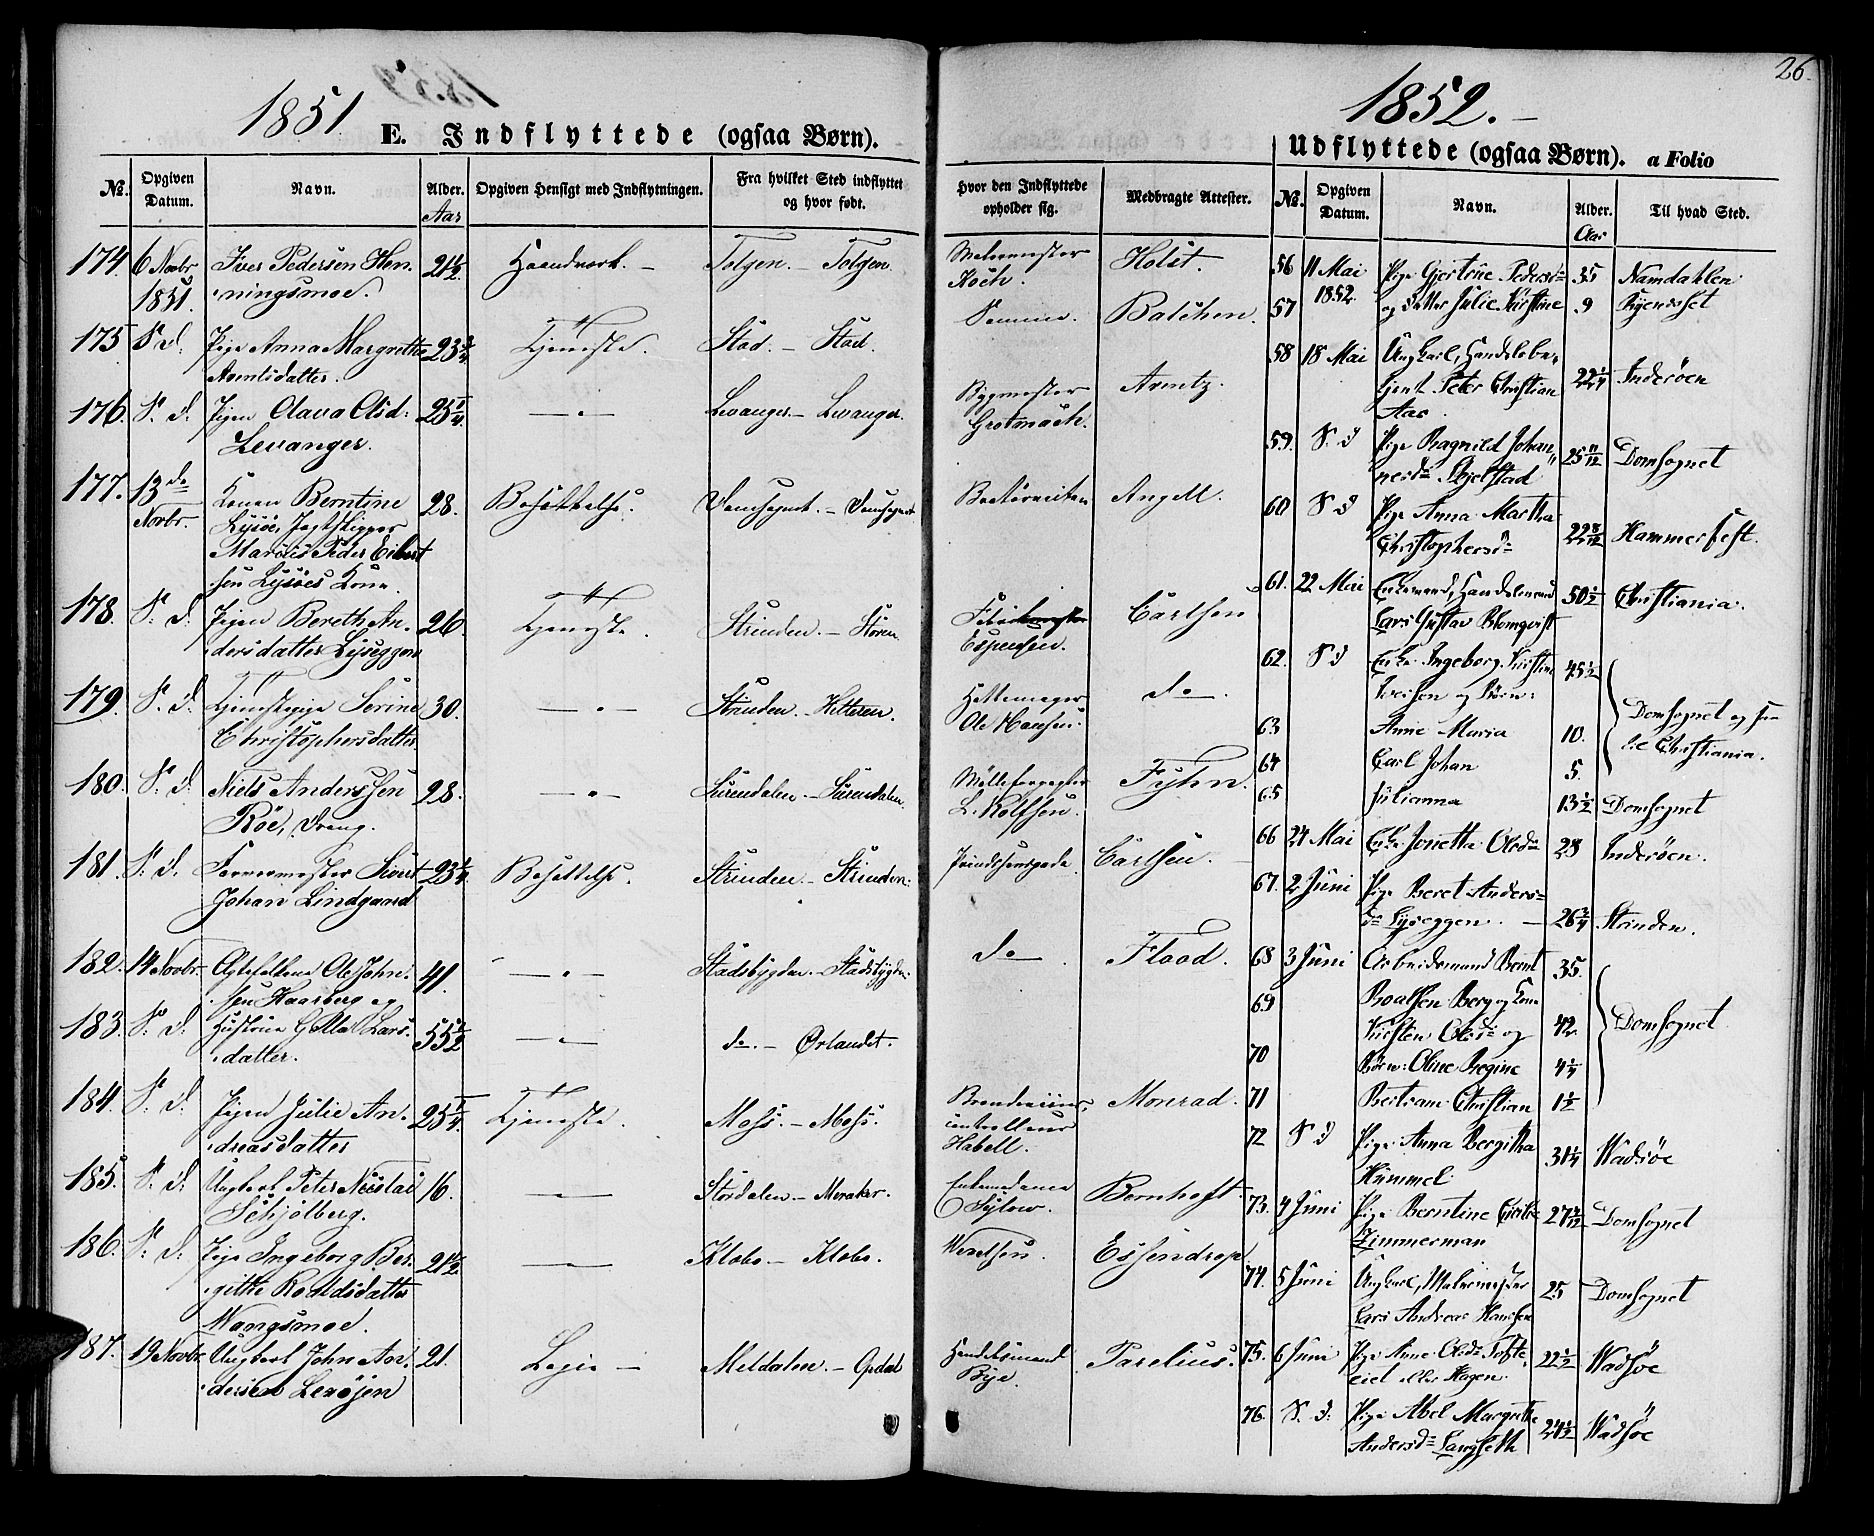 26.
1851
1852.
E. Indflyttede (ogsaa Børn).
Udflyttede (ogsaa Børn). a Folio
No. Opgiven Datum. Navn. Alder. Aar Opgiven Hensigt med Indflytningen. Fra hvilket Sted indflyttet og hvor født.
Hvor den Indflyttede opholder sig. Medbragte Attester.
174 6 Novbr 1851. Iver Pedersen Hen-
ningsmoe. 21½ Haandværk. Tolgen. – Tolgen.
Koch. Holst.
175 S: d: Pige Anna Margrethe
Arentsdatter. 23¾ Tjeneste. Stod. – Stod.
Balchen.
176. S: d: Pigen Olava Olsd:
Levanger. 25¼ –〃– Levanger – Levanger.
Bygmester
Grotmack. Arentz.
177. 13de Novbr. Konen Berntine
Lysöe, Jagtskipper
Peder Eibert
sen Lysöes Kone 28. Besættelse. Domsognet. – Domsognet
Angell.
178. S: d: Pigen Bereth An-
dersdatter Lyseggen 26. Tjeneste. Strinden. – Støren.
Espensen. Carlsen
179. S: d: Tjenestepige Serine
Christophersdatter 30. –〃– Strinden. – Hitteren.
Hattemager
Ole Hansen. do
180. S: d: Niels Anderssen
Röe, Dreng. 28. –〃– Surendalen – Surendalen
L. Rolfsen. Fyhn.
181. S: d: Farvermester Sivert
Johan Lindgaard 23¼ Besættelse. Strinden – Strinden.
Prindsensgade Carlsen.
182. 14 Novbr. Ægtefollene Ole John-
sen Haarberg og 41. –〃– Stadsbygden – Stadsbygden
do Flood.
183. S: d: Hustrue Lars-
datter. 55½ –〃– do. – Ørlandet.
184. S: d: Pigen Julie An-
dreasdatter 25¼ Tjeneste. Moss. – Moss.
Habell. Monrad.
185. S: d: Ungkarl Peter
Schjølberg. 16. –〃– Stordalen – Meraker.
Sylow. Bernhoft.
186. S: d: Pige Ingeborg Ber-
githe Roaldsdatter
Wangsmoe. 21½ –〃– Klæbo – Klæbo.
Essendrop.
187. 19 Novbr. Ungkarl John An-
dersen Lerøjen 21. Leie – Meldalen. – Opdal
Handelsmand
Bye. Parelius.
No. Opgiven Datum. Navn. Alder. Aar Til hvad Sted.
56 11 Mai 1852. Pige Gjertrue Pedersdr 35 Namdahlen
57 og Datter Julie Kirstine 9
58 18 Mai Ungkarl, Handelsbe-
tjent Peter Christian
Aas. Inderöen
59. S. d Pige Ragnild Johan-
nesdr Skjelstad 25 11/12 Domsognet
60 S d Pige Anna Martha
Christophersdr 22 8/12 Hammerfest.
61. 22 Mai Enkemand, Handelsmand
Lars Gustav Blomqvist 50½ Christiania.
62. S d Enke Ingeborg Kirstine
Iversen og Børn: 45½
63 Anne Maria 10. Domsognet og
64 Carl Johan 5. Christiania.
65 Julianna 13½ Domsognet
66 24 Mai Enke Jonetta Olsdr 28 Inderöen.
67. 2 Juni Pige Beret Anders-
dr Lyseggen. 26¾ Strinden.
68 3 Juni Arbeidsmand Bernt 35.
69 Roalsen Berg og Kone
Kirsten Olsdr og 42 Domsognet
70 Børn: Oline Regine 4¼
71 Bertram Christian 1½
72 S d Pige Anna Bergitha
Hummel 31¼ Wadsöe
73. 4 Juni Pige Berntine Cicilie
Zimmerman 27 Domsognet
74. 5 Juni Ungkarl, Malermester
Lars Andreas Hansen 25 Domsognet
75. 6 Juni Pige Anne Olsdr Tofte-
eiet eller Hagen. 22½ Wadsöe
76. S. d: Pige Abel Margrethe
Andersdr Langseth 24½ Wadsöe